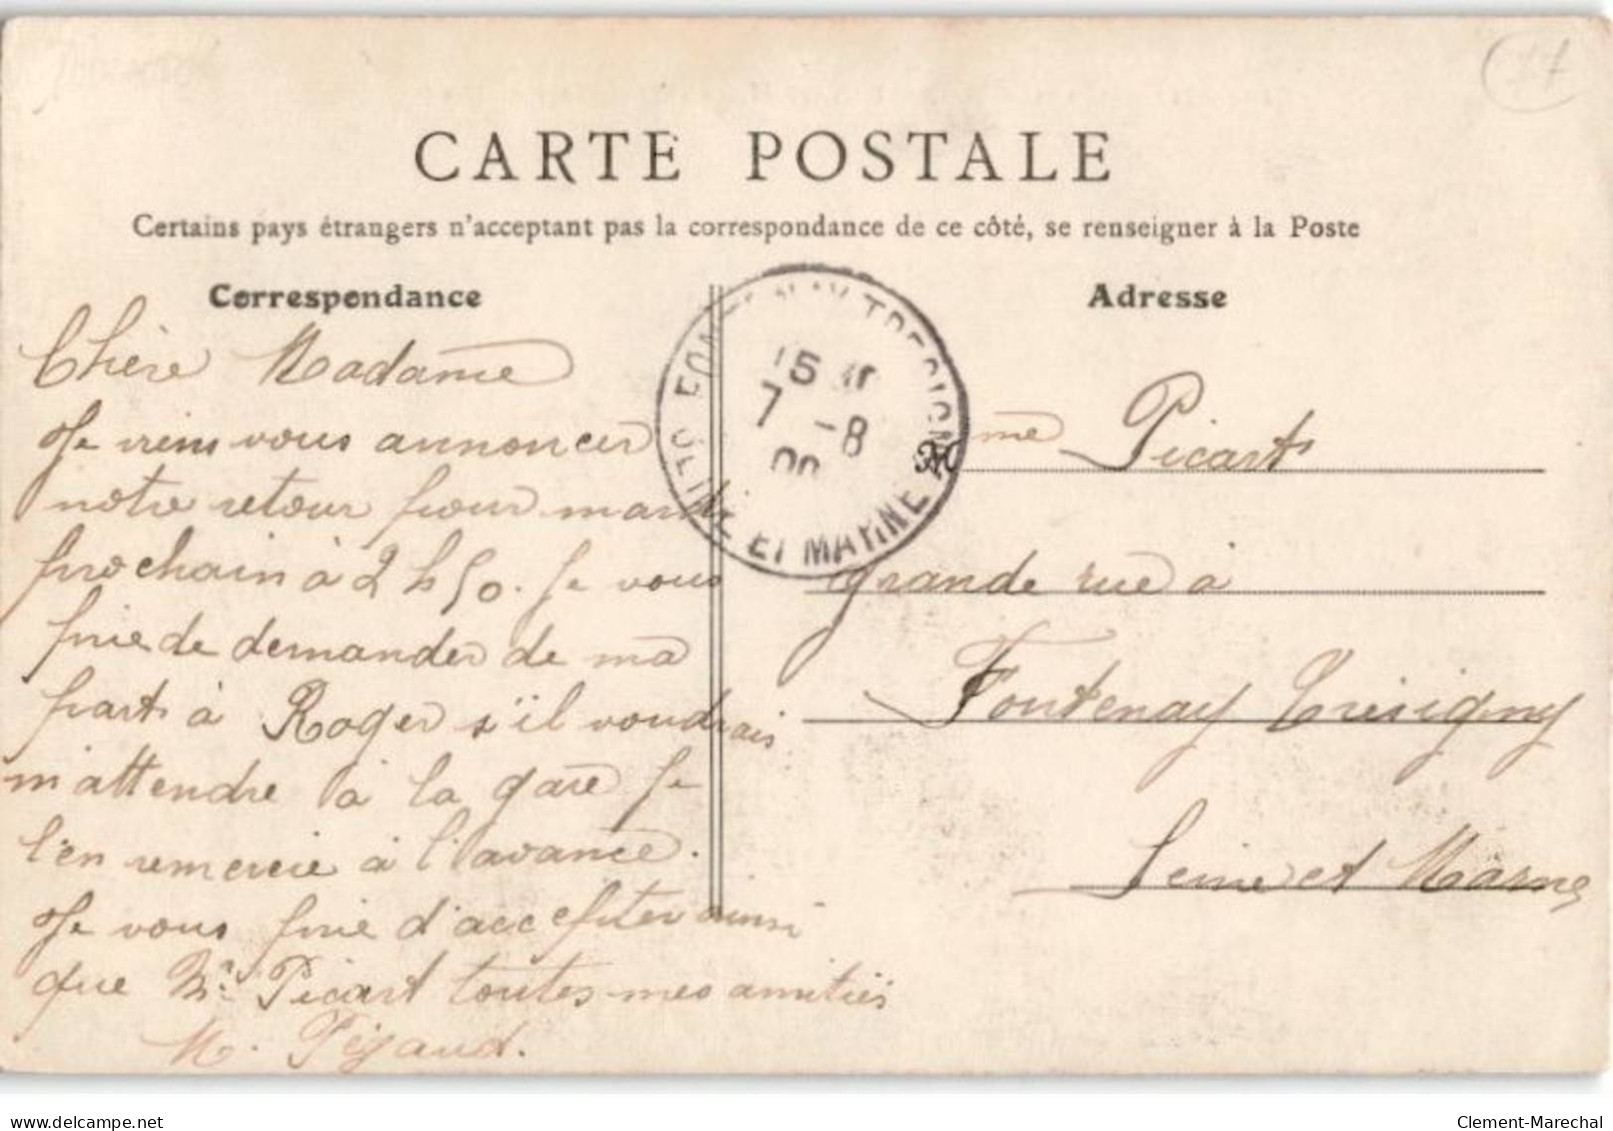 77
CARTE POSTALE
Certains pays étrangers n'acceptant pas la correspondance de ce côté, se renseigner à la Poste
Correspondance
Chère Madame
Je viens vous annoncer
notre retour pour mardi
prochain à 2 h 50. Je vous
prie de demander de ma
part à Roger s'il voudrais
m'attendre à la gare Je
l'en remercie à l'avance.
Je vous prie d'accepter ainsi
que Mr Picart toutes mes amitiés
M. Pégaud.
TRESIGNY
15
7 -8
SEINE ET MARNE
Adresse
Mme Picart
grande rue à
Fontenay Trésigny
Seine et Marne
delcampe.net
Clement-Marechal